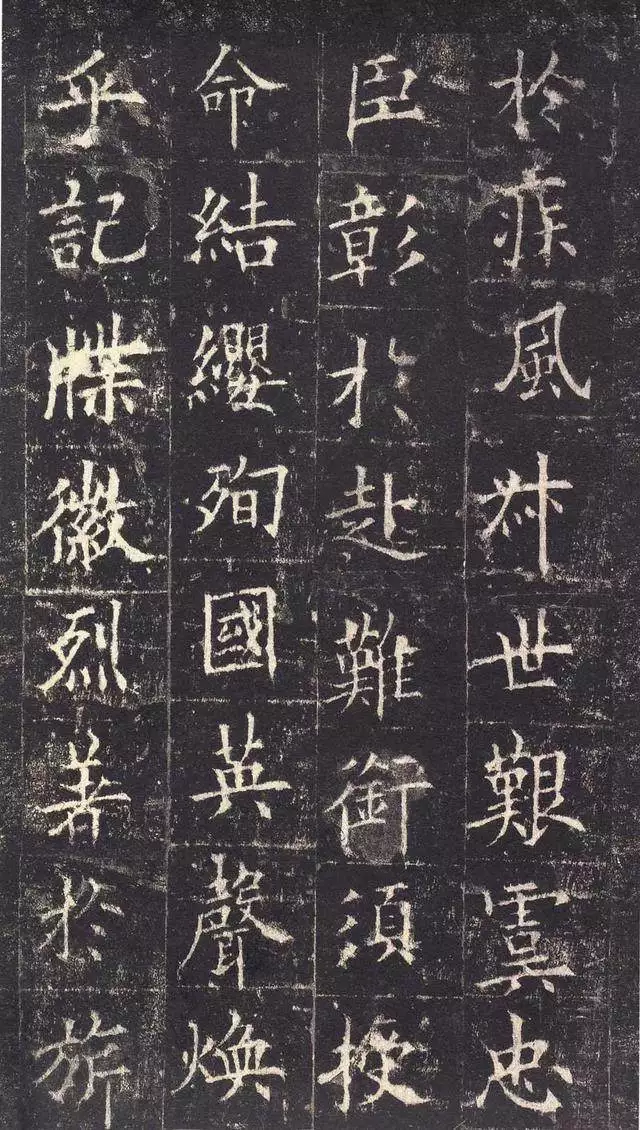 於疾風卅世艱虞忠
臣彰於赴難銜須授
命結纓殉國英聲煥
乎記牒徽烈著於旂